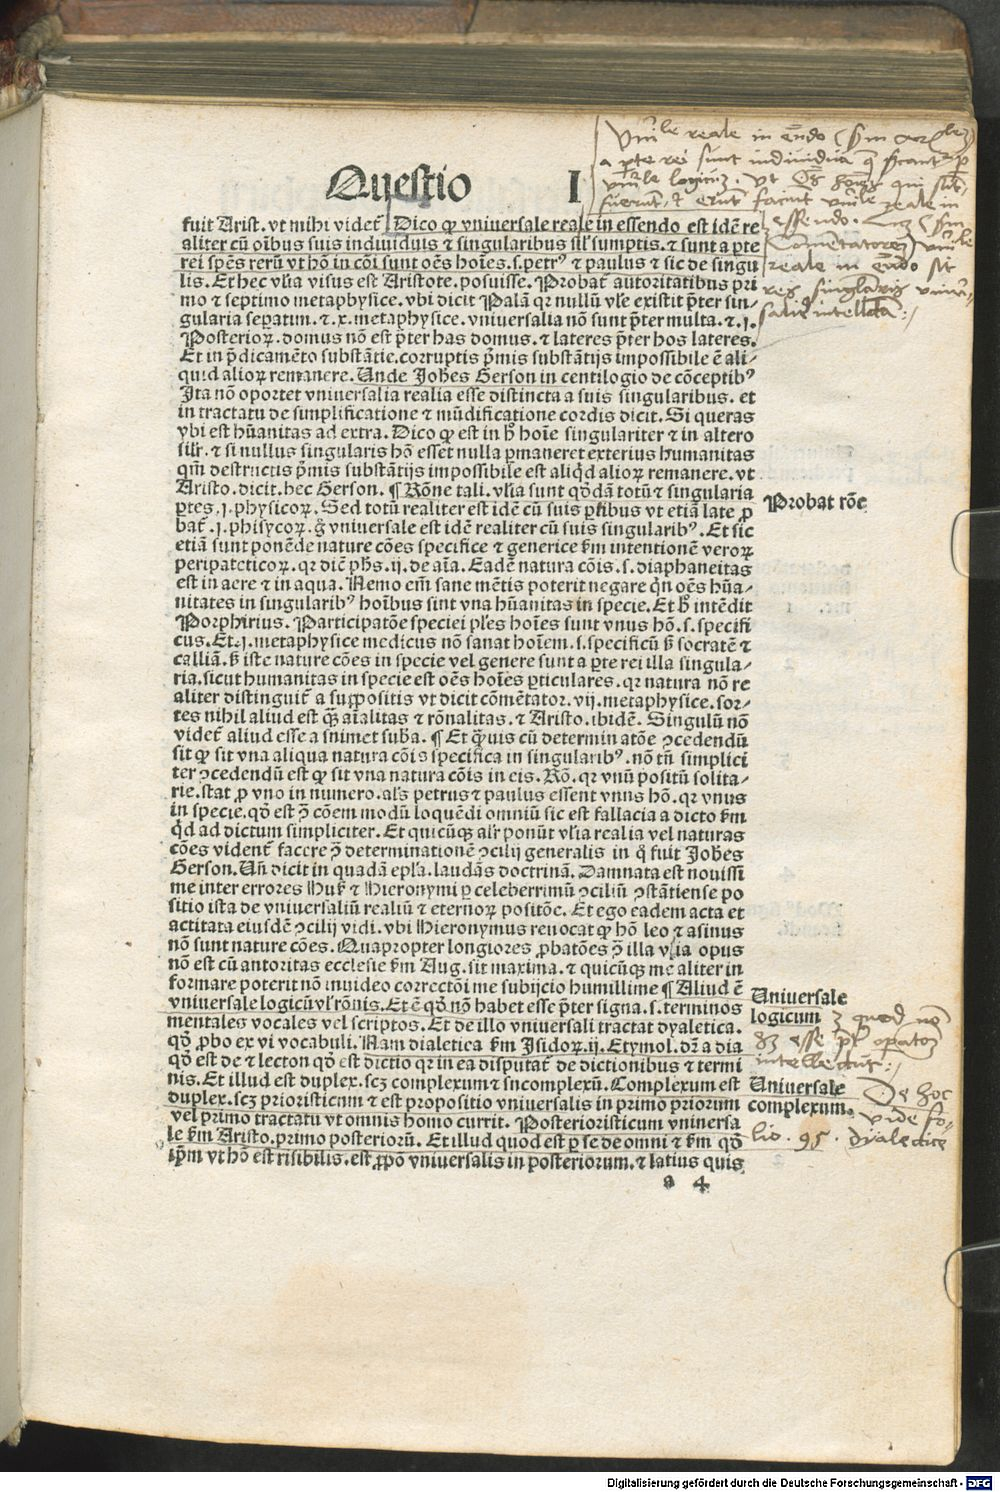 Questio I
fuit Arist. vt mihi videt̄ Dico ꝙ vniuersale reale in essendo est idē re
aliter cū oībus suis indiuiduis ⁊ singularibus sīl sumptis. ⁊ sunt a ꝑte
rei spēs rerū vt hō in cōi sunt oēs hoīes. s. petrꝰ ⁊ paulus ⁊ sic de singu
lis. Et hec vlīa visus est Aristote. posuisse. Probat̄ autoritatibus pri
mo ⁊ septimo metaphysice. vbi dicit Palā qr nullū vle existit p̄ter sin-
gularia seꝑatim. ⁊ .x. metaphysice. vniuersalia nō sunt p̄ter multa. ⁊ .j.
Posterioꝝ. domus nō est p̄ter has domus. ⁊ lateres p̄ter hos lateres.
Et in p̄dicamēto substātie. corruptis p̄mis substātijs impossibile ē ali-
quid alioꝝ remanere. Unde Joħes Gerson in centilogio de cōceptibꝰ
Ita nō oportet vniuersalia realia esse distincta a suis singularibus. et
in tractatu de simplificatione ⁊ mūdificatione cordis dicit. Si queras
vbi est hūanitas ad extra. Dico ꝙ est in ħ hoīe singulariter ⁊ in altero
silr. ⁊ si nullus singularis hō esset nulla ꝑmaneret exterius humanitas
qm̄ destructis p̄mis substātijs impossibile est aliq̇d alioꝝ remanere. vt
Aristo. dicit. hec Gerson. ¶ Rōne tali. vlīa sunt qḋdā totū ⁊ singularia
ꝑtes .j. physicoꝝ. Sed totū realiter est idē cū suis ꝑtibus vt etiā late ꝓ
bat̄ .j. phisycoꝝ. g̊ vniuersale est idē realiter cū suis singularibꝰ. Et sic
etiā sunt ponēde nature cōes specifice ⁊ generice ẜm intentionem veroꝝ
peripateticoꝝ. qr dicit phs .ij. de aīa. Eadē natura cōis. s. diaphaneitas
est in aere ⁊ in aqua. Nemo em̄ sane mētis poterit negare qn̄ oēs hūa-
nitates in singularibꝰ hoībus sint vna hūanitas in specie. Et ħ intēdit
Porphirius. Participatōe speciei pl̄es hoīes sunt vnus hō. s. specifi
cus. Et .j. metaphysice medicus nō sanat hoīem. s. specificū ẜ socratē ⁊
calliā. ẜ iste nature cōes in specie vel genere sunt a ꝑte rei illa singula-
ria. sicut humanitas in specie est oēs hoīes ꝑticulares. qr natura nō re
aliter distinguit̄ a suppositis vt dicit cōmētator .vij. metaphysice. sor-
tes nihil aliud est qͣ̄ aīalitas ⁊ rōnalitas. ⁊ Aristo. ibidē. Singulū nō
videt̄ aliud esse a snimet suba. ¶ Et qͣ̄uis cū determinatōe ꝯcedendū
sit ꝙ sit vna aliqua natura cōis specifica in singularibꝰ. non tn̄ simplici
ter ꝯcedendū est ꝙ sit vna natura cōis in eis. Rō. qr vnū positū solita-
rie. stat ꝓ vno in numero. als petrus ⁊ paulus essent vnus hō. qr vnus
in specie. qḋ est ꝯ̄ cōem modū loquēdi omniū sic est fallacia a dicto ẜm
qͥd ad dictum simpliciter. Et quicūqꝫ alr̄ ponūt vlīa realia vel naturas
cōes vident̄ facere ꝯ̄ determinationē ꝯcilij generalis in qͦ fuit Joħes
Gerson. Uñ dicit in quadā epl̄a. laudās doctrinā. Damnata est nouissi
me inter errores Huß ⁊ Hieronymi ꝑ celeberrimū ꝯciliū ꝯstātiense po
sitio ista de vniuersaliū realiū ⁊ eternoꝝ positōe. Et ego eadem acta et
actitata eiusdē ꝯcilij vidi. vbi Hieronymus reuocat ꝙ hō leo ⁊ asinus
nō sunt nature cōes. Quapropter longiores ꝓbatōes ꝯ̄ illa vlīa opus
nō est cū autoritas ecclesie ẜm Aug. sit maxima. ⁊ quicūqꝫ me aliter in
formare poterit nō inuideo correctōi me subijcio humillime ¶ Aliud ē
vniuersale logicū vl̄ rōnis. Et ē qḋ nō habet esse p̄ter signa. s. terminos
mentales vocales vel scriptos. Et de illo vniuersali tractat dyaletica.
qḋ ꝓbo ex vi vocabuli. Nam dialetica ẜm Isidoꝝ .ij. Etymol. dr̄ a dia
qḋ est de ⁊ lecton qḋ est dictio qr in ea disputat̄ de dictionibus ⁊ termi
nis. Et illud est duplex. scꝫ complexum ⁊ incomplexū. Complexum est
duplex. scꝫ prioristicum ⁊ est propositio vniuersalis in primo priorum
vel primo tractatu vt omnis homo currit. Posterioristicum vniuersa
le ẜm Aristo. primo posteriorū. Et illud quod est ꝑ se de omni ⁊ ẜm qḋ
ip̄m vt hō est risibilis. est ꝓpō vniuersalis in posteriorum. ⁊ latius quis
a 4
Uniūle reale in ēndo
a ꝑte rei sunt indiuidua
vniūle logicū. vt qui sūt,
fuerunt, ⁊ erunt faciut vniūle reale in
essendo.
Comentatorē) vniūle
reale in ēndo sit
res singularis vniuer-
salir intellecta :/
Probat rōe
Uniuersale
logicum
quod nō
hꝫ esse p̄t opatoꝫ
intellectus :/
Uniuersale
complexum.
De hoc
vide fo-
lio . 95 . dialectice
Digitalisierung gefördert durch die Deutsche Forschungsgemeinschaft - DFG